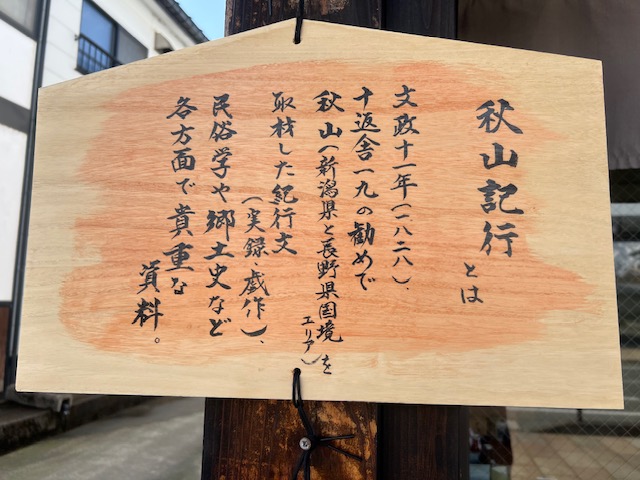 秋山記行とは
文政十一年(一八二八)、
十返舎一九の勧めで
秋山(新潟県と長野県国境エリア)を
取材した紀行文
(実録・戯作)、
民俗学や郷土史など
各方面で貴重な
資料。